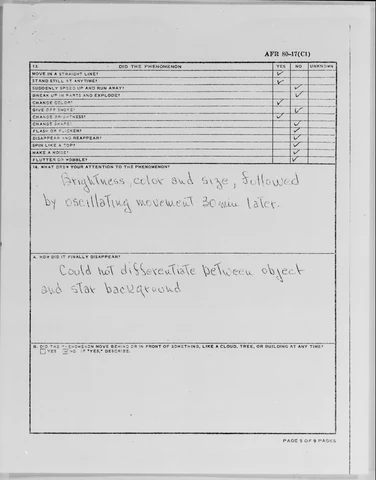 AFR 80-17(C1)
13. DID THE PHENOMENON YES NO UNKNOWN
MOVE IN A STRAIGHT LINE? ✓
STAND STILL AT ANYTIME? ✓
SUDDENLY SPEED UP AND RUN AWAY? ✓
BREAK UP IN PARTS AND EXPLODE? ✓
CHANGE COLOR? ✓
GIVE OFF SMOKE? ✓
CHANGE BRIGHTNESS? ✓
CHANGE SHAPE? ✓
FLASH OR FLICKER? ✓
DISAPPEAR AND REAPPEAR? ✓
SPIN LIKE A TOP? ✓
MAKE A NOISE? ✓
FLUTTER OR WOBBLE? ✓
14. WHAT DREW YOUR ATTENTION TO THE PHENOMENON?
Brightness, color and size, followed
by oscillating movement 30 min later.
A. HOW DID IT FINALLY DISAPPEAR?
Could not differentiate between object
and star background
B. DID THE PHENOMENON MOVE BEHIND OR IN FRONT OF SOMETHING, LIKE A CLOUD, TREE, OR BUILDING AT ANY TIME?
YES NO IF "YES," DESCRIBE.
PAGE 5 OF 8 PAGES